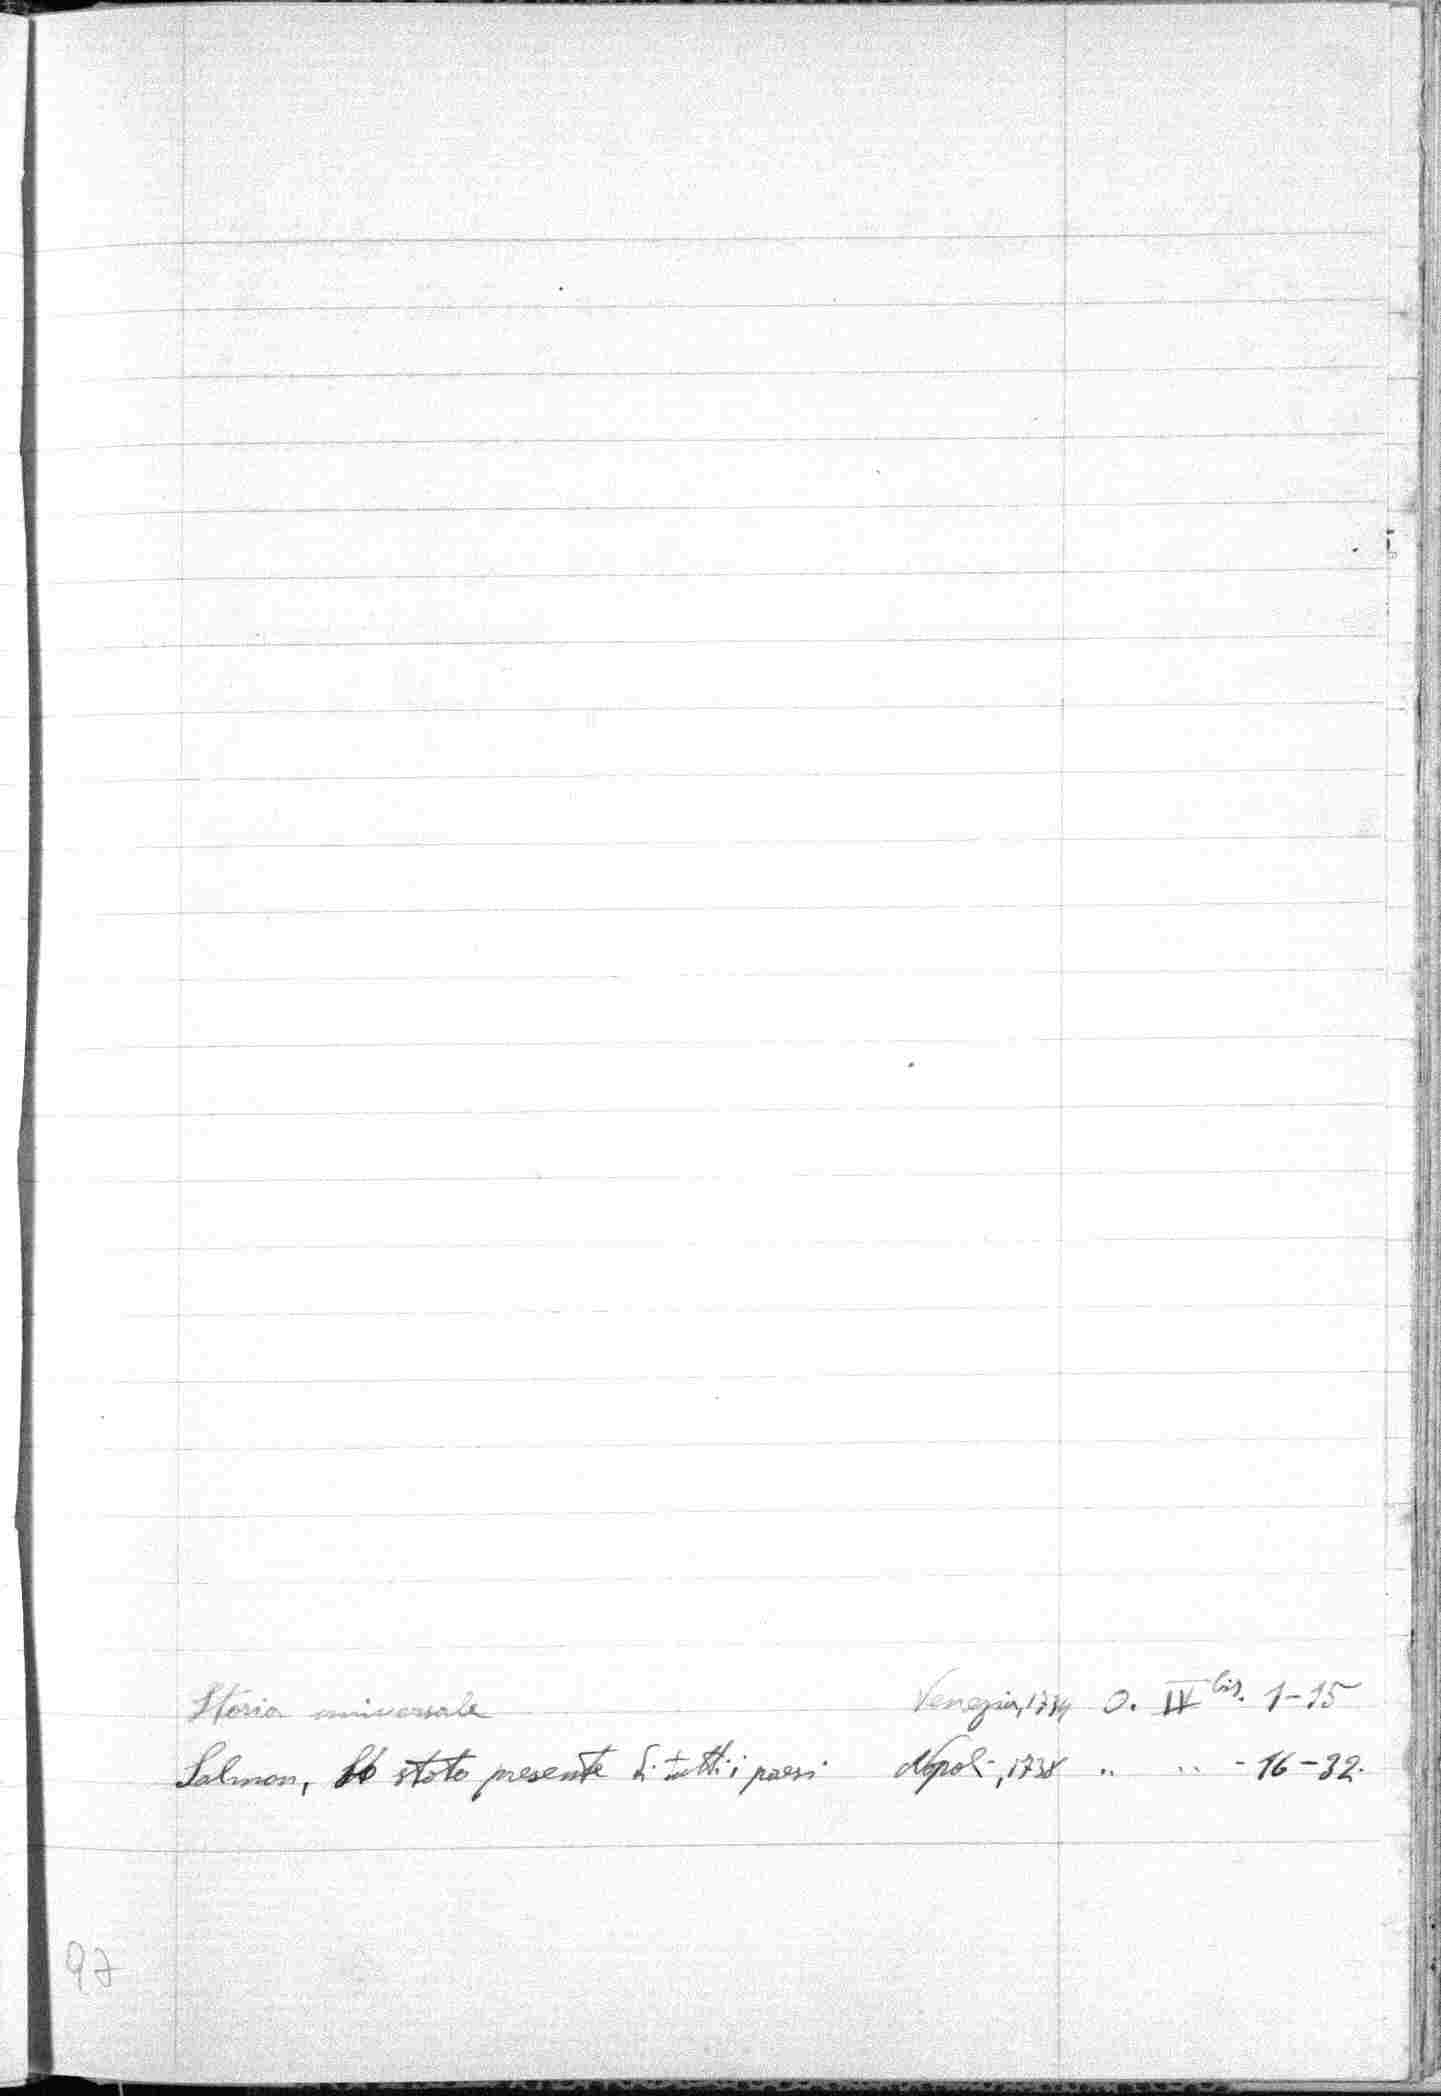 Storia universale Venezia, 1734 O. IV bis. 1-15
Salmon, Lo stato presente di tutti i paesi Napoli, 1738 " " - 16-32.
97